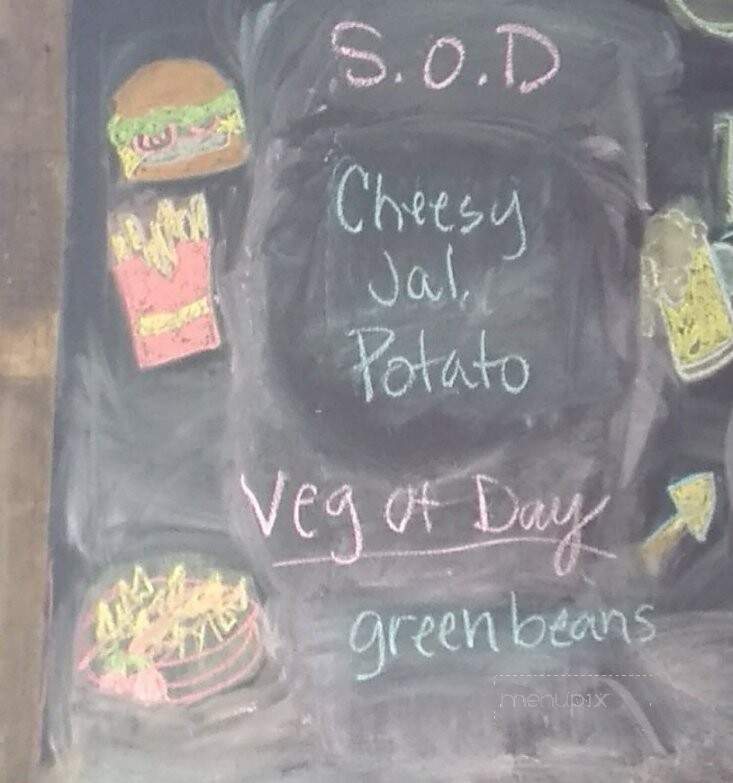 S.O.D
Cheesy
Jal.
Potato
Veg of Day
green beans
menupix